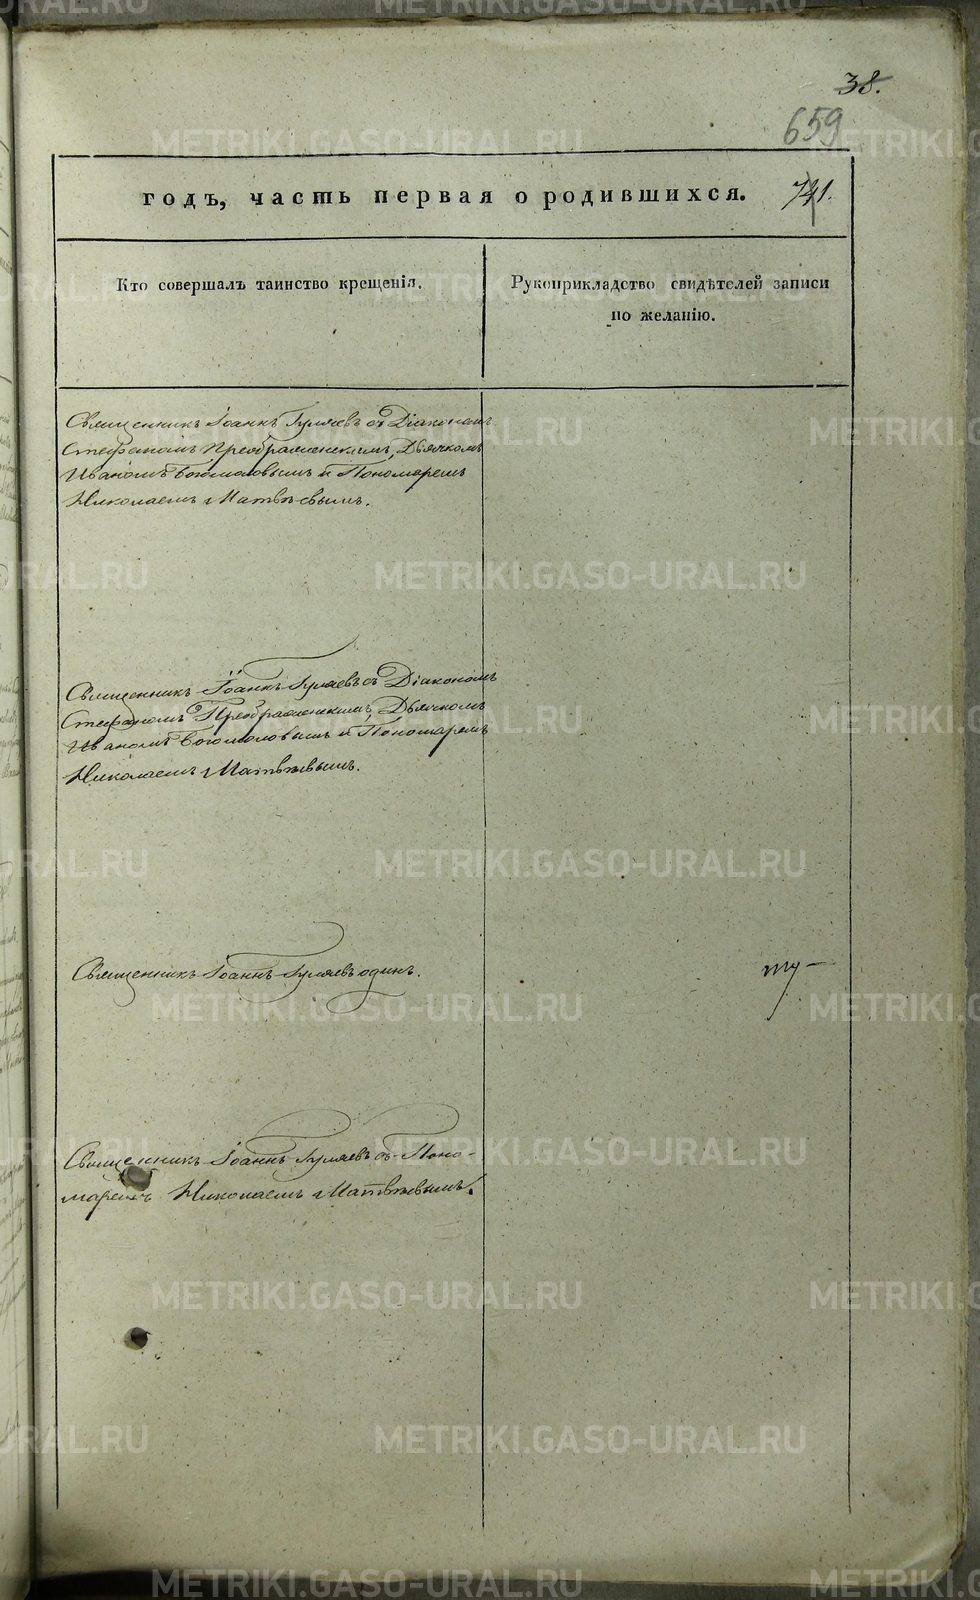 38.
659
годъ, часть первая о родившихся. 741.
Кто совершалъ таинство крещенія.
Рукоприкладство свидѣтелей записи
по желанію.
Священникъ Іоаннъ Гуляевъ съ Діакономъ
Стефаномъ Преображенскимъ, Дьячкомъ
Иваномъ Богомоловымъ и Пономаремъ
Николаемъ Матвѣевымъ.
Священникъ Іоаннъ Гуляевъ съ Діакономъ
Стефаномъ Преображенскимъ, Дьячкомъ
Иваномъ Богомоловымъ и Пономаремъ
Николаемъ Матвѣевымъ.
Священникъ Іоаннъ Гуляевъ одинъ.
Священникъ Іоаннъ Гуляевъ съ Поно-
маремъ Николаемъ Матвѣевымъ.
METRIKI.GASO-URAL.RU